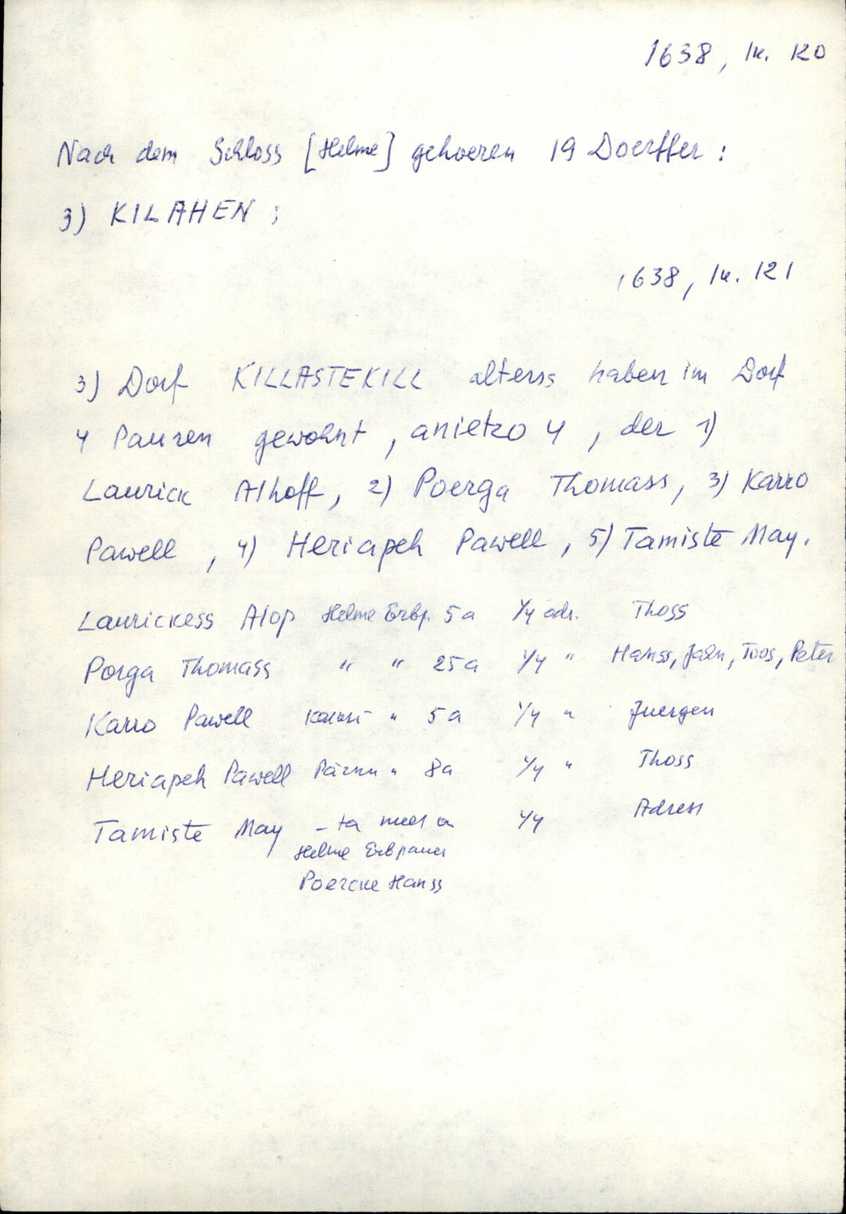 1638, lk. 120
Nach dem Schloss [Helme] gehoeren 19 Doerffer :
3) KILAHEN ;
1638, lk. 121
3) Dorf KILLASTEKILL alterss haben im Dorf
4 Pauren gewohnt, anietzo 4, der 1)
Laurick Alhoff, 2) Poerga Thomass, 3) Karro
Pawell, 4) Heriapeh Pawell, 5) Tamiste May.
Laurickess Alop Helme Erbp. 5 a 1/4 adr. Thoss
Porga Thomass " " 25 a 1/4 " Hanss, Jaen, Toos, Peter
Karro Pawell " 5 a 1/4 " Juergen
Heriapeh Pawell Pärnu " 8a 1/4 " Thoss
Tamiste May – ta mees on 1/4 Adress
Helme Erbpauer
Poercke Hanss